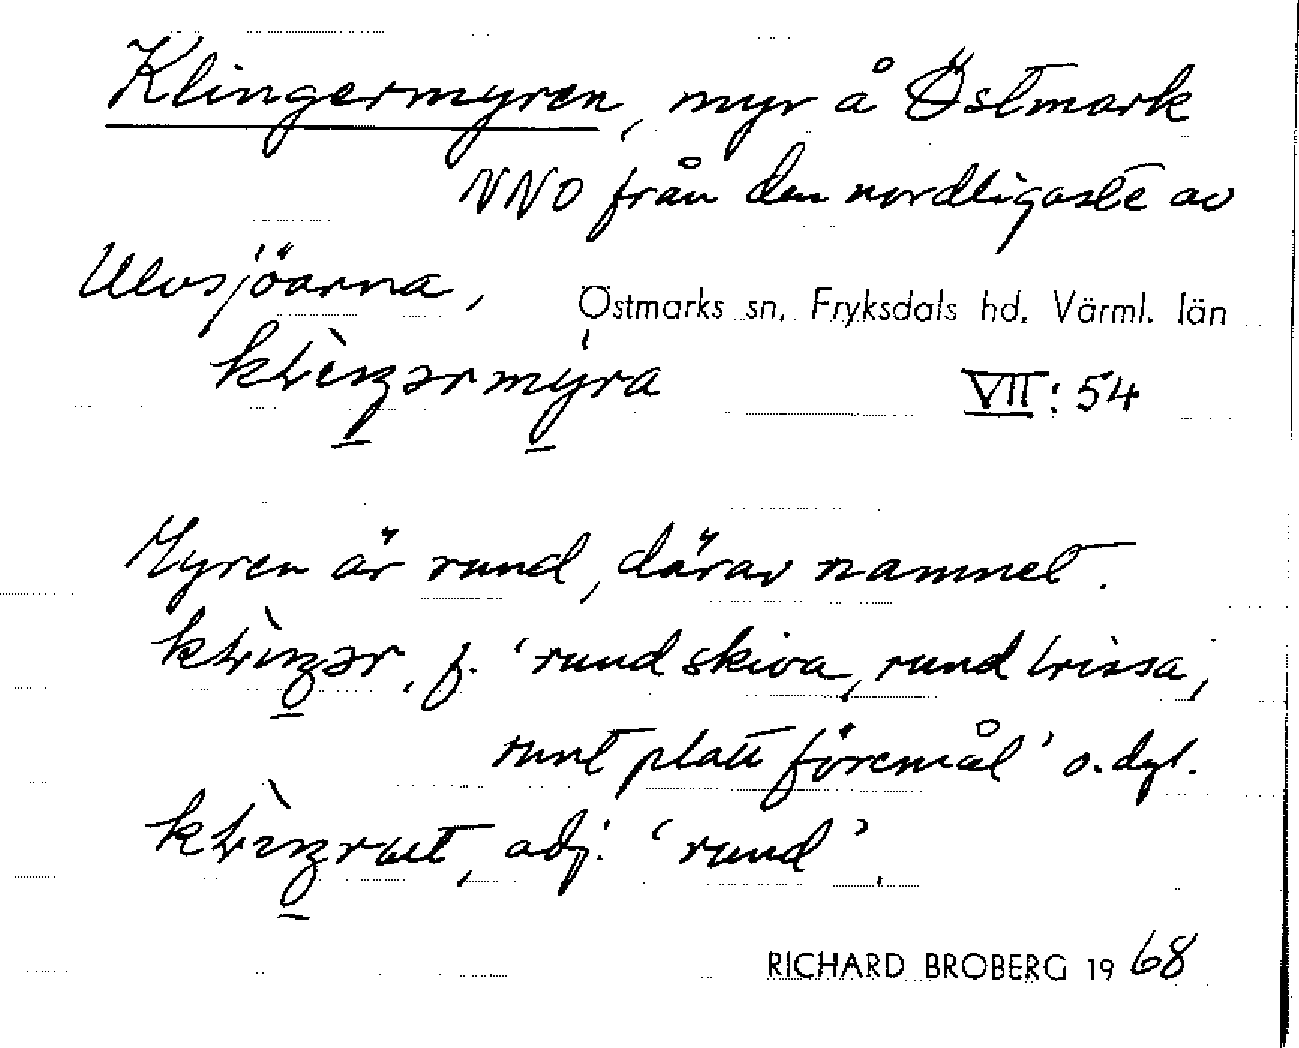 Klingermyren, myr å Östmark
NNO från den nordligaste av
Ulvsjöarna, Östmarks sn, Fryksdals hd. Värml. län
VII: 54
Myren är rund, därav namnet.
f. 'rund skiva, rund trissa,
runt platt föremål' o.dyl.
adj. 'rund'.
RICHARD BROBERG 1968